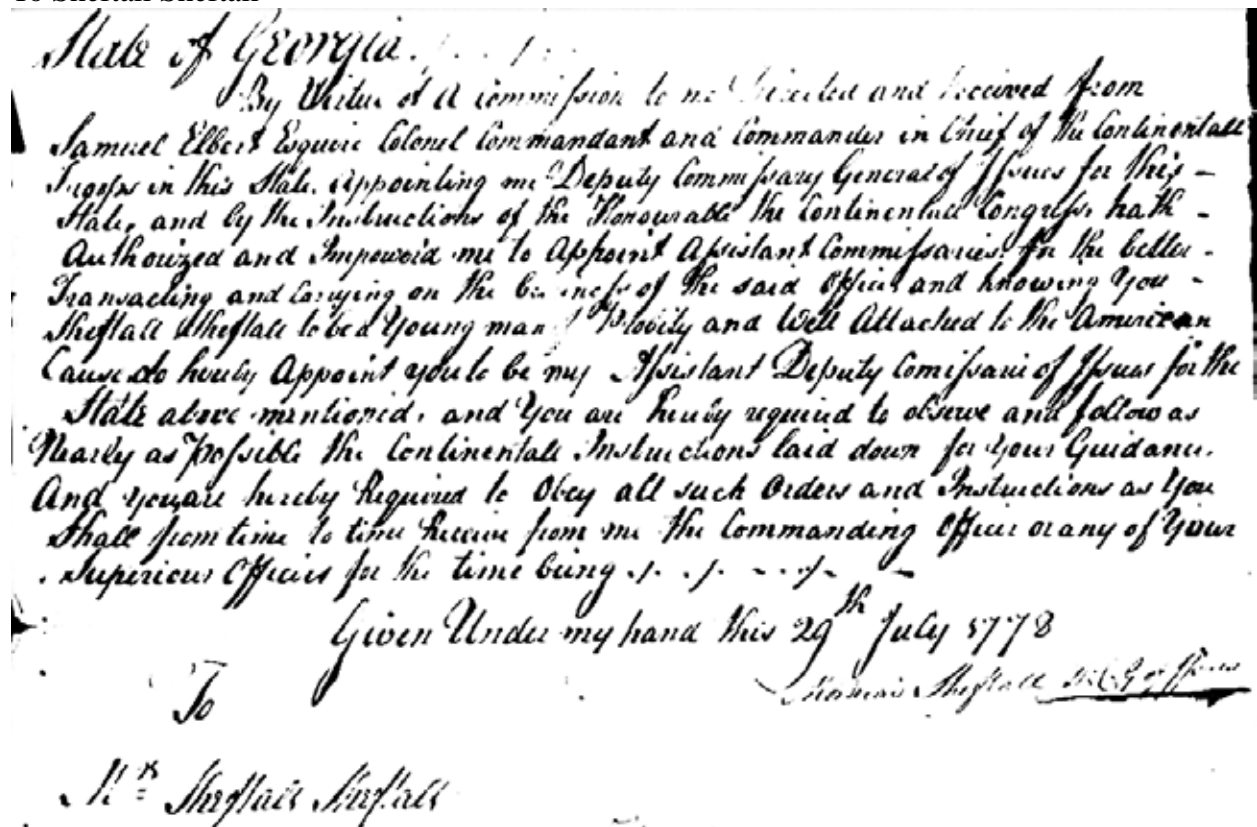 To Sheftall Sheftall
State of Georgia.
By Virtue of a commission to me Directed and Received from
Samuel Elbert Esquire Colonel Commandant and Commander in Chief of the Continentall
Troops in this State. Appointing me Deputy Commissary General of Issues for this -
State, and by the Instructions of the Honourable the Continentall Congress, hath -
Authorized and Impowerd me to Appoint Assistant Commissaries for the better -
Transacting and Carrying on the business of the said Office and knowing You -
Sheftall Sheftall to be a Young man of Probity and Well Attached to the American
Cause do hereby Appoint you to be my Assistant Deputy Comissarie of Issues for the
State above mentioned, and You are hereby required to observe and follow as
Nearly as Possible the Continentall Instructions laid down for your Guidance.
And you are hereby Required to Obey all such Orders and Instructions as You
Shall from time to time Receive from me the Commanding Officer or any of Your
Superiour Officers for the time being
Given Under my hand this 29th July 1778
Sheftall D.C.G of Issues
To
Mr Sheftall Sheftall